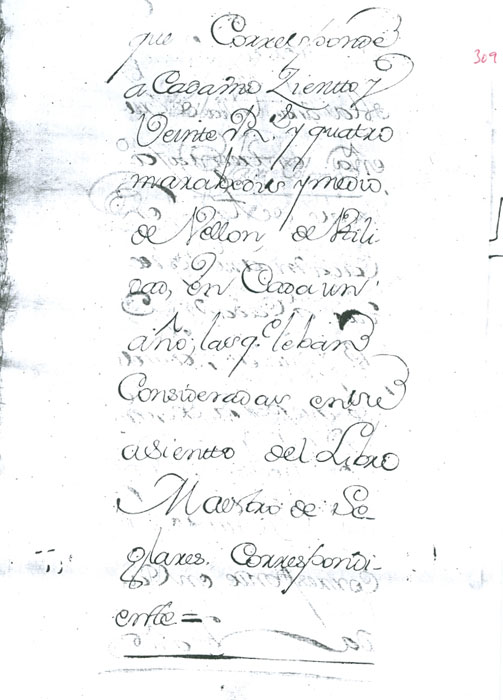 309
que Corresponde
a Cada año Zientto y
Veinte Rs. y quatro
maravedis y medio,
de Vellon, de Utili-
dad, en Cada un
año, las q. e leban
Consideradas en tre
asientto del Libro
Maestro de Se-
glares. Correspondi-
ente =